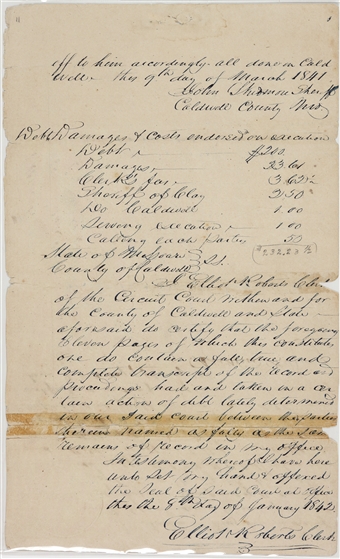 off to him accordingly all done in Cald
well this 9th day of March 1841
John Skidmore Sheriff
Caldwell County Mo
Debt Damages & Costs endorsed on execution
Debt, $200.
Damages, 33.61
Clerk's fees 3.62½
Sheriff of Clay 2.50
Do Caldwell 1.00
Serving execution 1.00
Calling each party 50
State of Missouri
County of Caldwell } Sct.
I Elliott Roberts Clerk
of the Circuit Court within and for
the County of Caldwell and State
aforesaid do certify that the foregoing
Eleven pages of which this constitutes
one do contain a full, true, and
complete transcript of the record and
proceedings had and taken in a cer
tain action of debt lately determined
in our said Court between the parties
therein named as fully as the same
remains of Record in my office
In testimony whereof I have here
unto set my hand & affixed
the Seal of said Court at office
this the 8th day of January 1842
Elliott Roberts Clerk